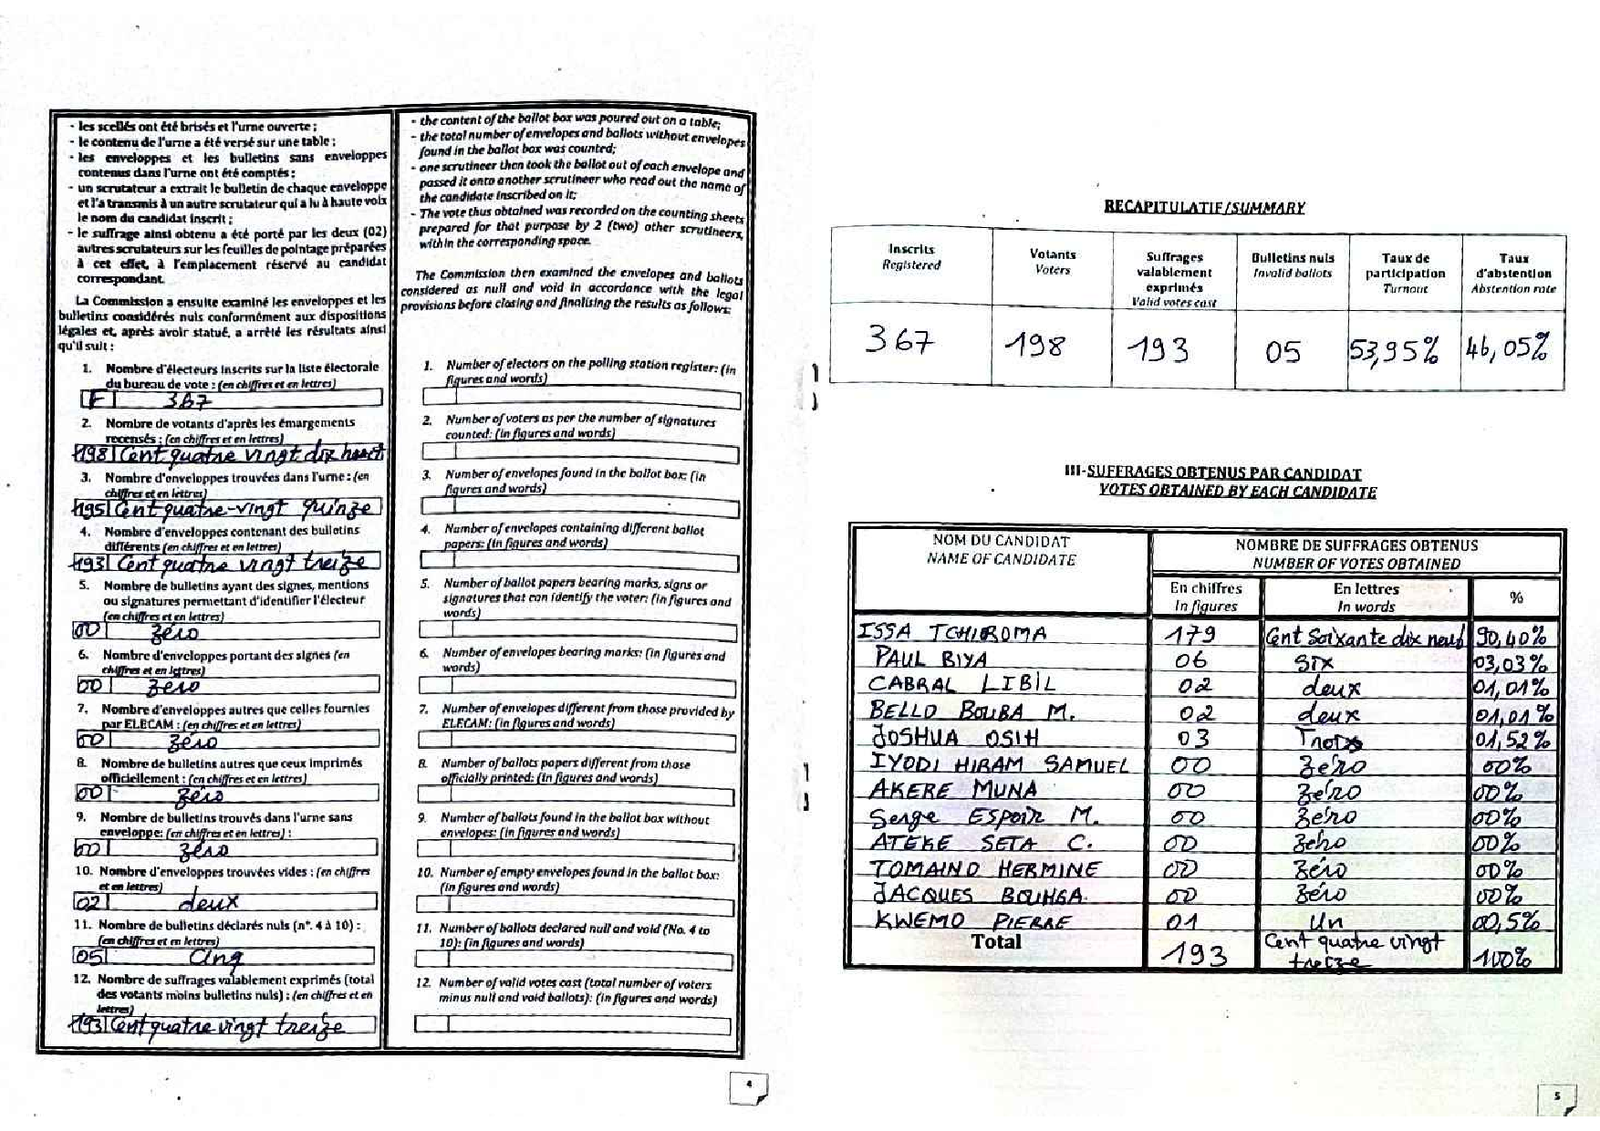 - les scellés ont été brisés et l'urne ouverte ;
- le contenu de l'urne a été versé sur une table ;
- les enveloppes et les bulletins sans enveloppes
contenus dans l'urne ont été comptés ;
- un scrutateur a extrait le bulletin de chaque enveloppe
et l'a transmis à un autre scrutateur qui a lu à haute voix
le nom du candidat inscrit ;
- le suffrage ainsi obtenu a été porté par les deux (02)
autres scrutateurs sur les feuilles de pointage préparées
à cet effet, à l'emplacement réservé au candidat
correspondant.
La Commission a ensuite examiné les enveloppes et les
bulletins considérés nuls conformément aux dispositions
légales et, après avoir statué, a arrêté les résultats ainsi
qu'il suit :
1. Nombre d'électeurs inscrits sur la liste électorale
du bureau de vote : (en chiffres et en lettres)
367
2. Nombre de votants d'après les émargements
recensés : (en chiffres et en lettres)
198 Cent quatre vingt dix huit
3. Nombre d'enveloppes trouvées dans l'urne : (en
chiffres et en lettres)
195 Cent quatre-vingt quinze
4. Nombre d'enveloppes contenant des bulletins
différents (en chiffres et en lettres)
193 Cent quatre vingt treize
5. Nombre de bulletins ayant des signes, mentions
ou signatures permettant d'identifier l'électeur
(en chiffres et en lettres)
00 Zéro
6. Nombre d'enveloppes portant des signes (en
chiffres et en lettres)
00 Zéro
7. Nombre d'enveloppes autres que celles fournies
par ELECAM : (en chiffres et en lettres)
00 Zéro
8. Nombre de bulletins autres que ceux imprimés
officiellement : (en chiffres et en lettres)
00 Zéro
9. Nombre de bulletins trouvés dans l'urne sans
enveloppe: (en chiffres et en lettres) :
00 Zéro
10. Nombre d'enveloppes trouvées vides : (en chiffres
et en lettres)
02 deux
11. Nombre de bulletins déclarés nuls (n°. 4 à 10) :
(en chiffres et en lettres)
05 Cinq
12. Nombre de suffrages valablement exprimés (total
des votants moins bulletins nuls) : (en chiffres et en
lettres)
193 Cent quatre vingt treize
- the content of the ballot box was poured out on a table;
- the total number of envelopes and ballots without envelopes
found in the ballot box was counted;
- one scrutineer then took the ballot out of each envelope and
passed it onto another scrutineer who read out the name of
the candidate inscribed on it;
- The vote thus obtained was recorded on the counting sheets
prepared for that purpose by 2 (two) other scrutineers,
within the corresponding space.
The Commission then examined the envelopes and ballots
considered as null and void in accordance with the legal
provisions before closing and finalising the results as follows:
1. Number of electors on the polling station register: (in
figures and words)
2. Number of voters as per the number of signatures
counted: (in figures and words)
3. Number of envelopes found in the ballot box: (in
figures and words)
4. Number of envelopes containing different ballot
papers: (in figures and words)
5. Number of ballot papers bearing marks, signs or
signatures that can identify the voter: (in figures and
words)
6. Number of envelopes bearing marks: (in figures and
words)
7. Number of envelopes different from those provided by
ELECAM: (in figures and words)
8. Number of ballots papers different from those
officially printed: (in figures and words)
9. Number of ballots found in the ballot box without
envelopes: (in figures and words)
10. Number of empty envelopes found in the ballot box:
(in figures and words)
11. Number of ballots declared null and void (No. 4 to
10): (in figures and words)
12. Number of valid votes cast (total number of voters
minus null and void ballots): (in figures and words)
4
RECAPITULATIF/SUMMARY
Inscrits Registered
Votants Voters
Suffrages valablement exprimés Valid votes cast
Bulletins nuls Invalid ballots
Taux de participation Turnout
Taux d'abstention Abstention rate
367 198 193 05 53,95% 46,05%
III-SUFFRAGES OBTENUS PAR CANDIDAT
VOTES OBTAINED BY EACH CANDIDATE
NOM DU CANDIDAT
NAME OF CANDIDATE
NOMBRE DE SUFFRAGES OBTENUS
NUMBER OF VOTES OBTAINED
En chiffres
In figures
En lettres
In words
%
ISSA TCHIROMA 179 Cent Soixante dix neuf 90,40%
PAUL BIYA 06 Six 03,03%
CABRAL LIBIL 02 deux 01,01%
BELLO BOUBA M. 02 deux 01,01%
JOSHUA OSIH 03 Trois 01,52%
IYODI HIRAM SAMUEL 00 Zéro 00%
AKERE MUNA 00 Zéro 00%
Serge ESPOIR M. 00 Zéro 00%
ATEKE SETA C. 00 Zéro 00%
TOMAINO HERMINE 00 Zéro 00%
JACQUES BOUHGA 00 Zéro 00%
KWEMO PIERRE 01 Un 00,5%
Total 193 Cent quatre vingt treize 100%
5